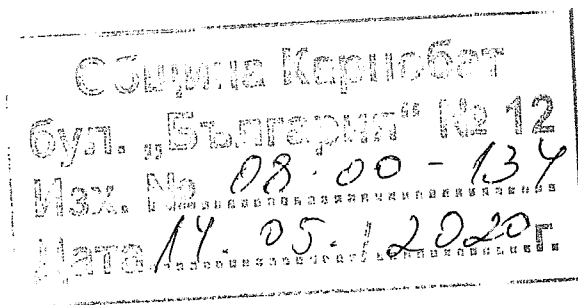 Община Карнобат
бул. „България“ № 12
Изх. № 08.00-134
Дата 14.05.2020г.